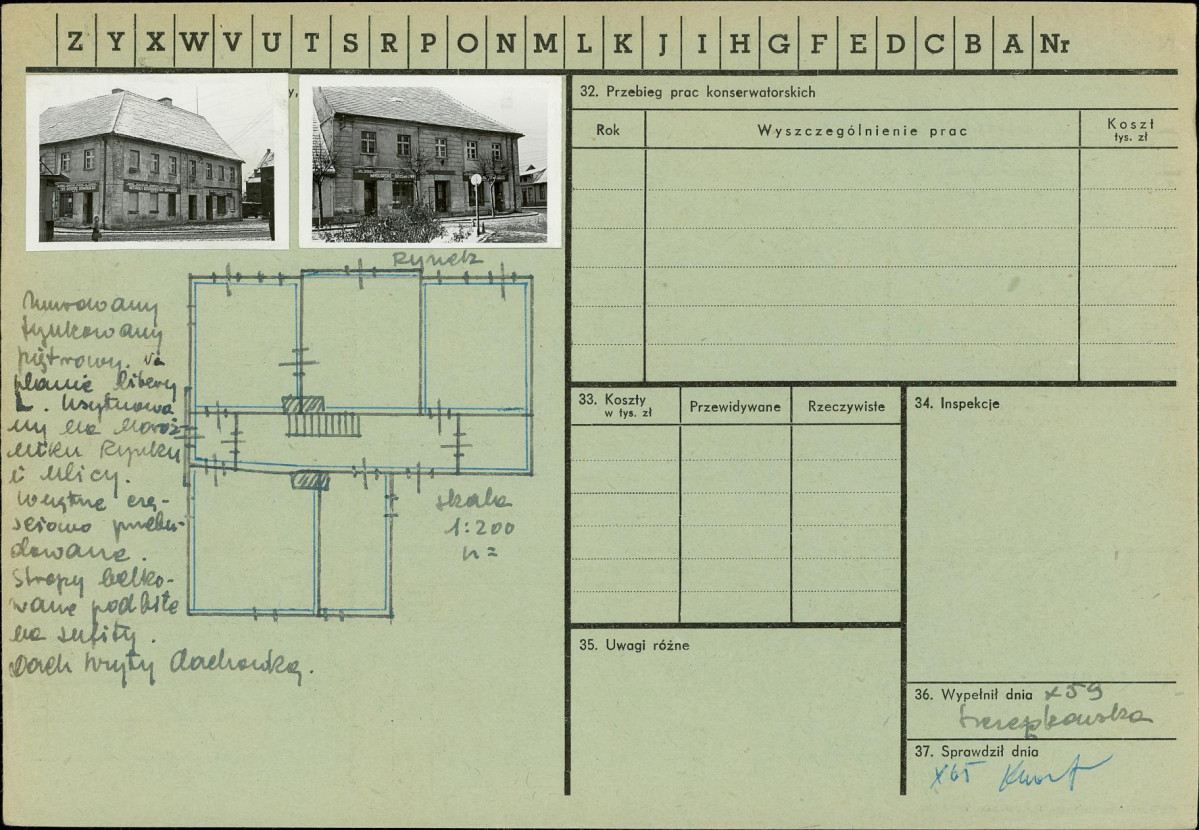 Z Y X W V U T S R P O N M L K J I H G F E D C B A Nr
y,
Rynek
Murowany
tynkowany
piętrowy. Na
planie litery
L. Usytuowa
ny na naroż-
niku Rynku
i ulicy.
Wnętrze czę-
ściowo przebu-
dowane.
Stropy belko-
wane podbite
na sufity.
Dach kryty dachówką.
skala
1:200
n=
32. Przebieg prac konserwatorskich
Rok
Wyszczególnienie prac
Koszt
tys. zł
33. Koszty
w tys. zł
Przewidywane
Rzeczywiste
34. Inspekcje
35. Uwagi różne
36. Wypełnił dnia X 59
37. Sprawdził dnia
X 65